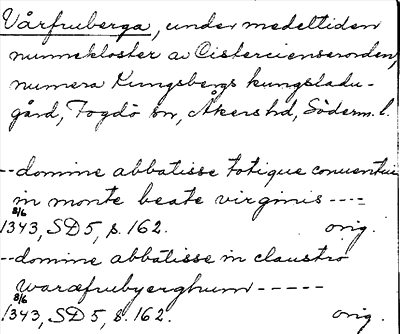 Vårfruberga, under medeltiden
nunnekloster av Cistercienserorden,
numera Kungsbergs kungsladu-
gård, Fogdö sn, Åkers hd, Söderm. l.
--domine abbatisse totique conuentui
in monte beate virginis ----
8/6
1343, SD 5, s. 162. orig.
--domine abbatisse in claustro
waræfrubyerghum -----
8/6
1343, SD 5, s. 162. orig.